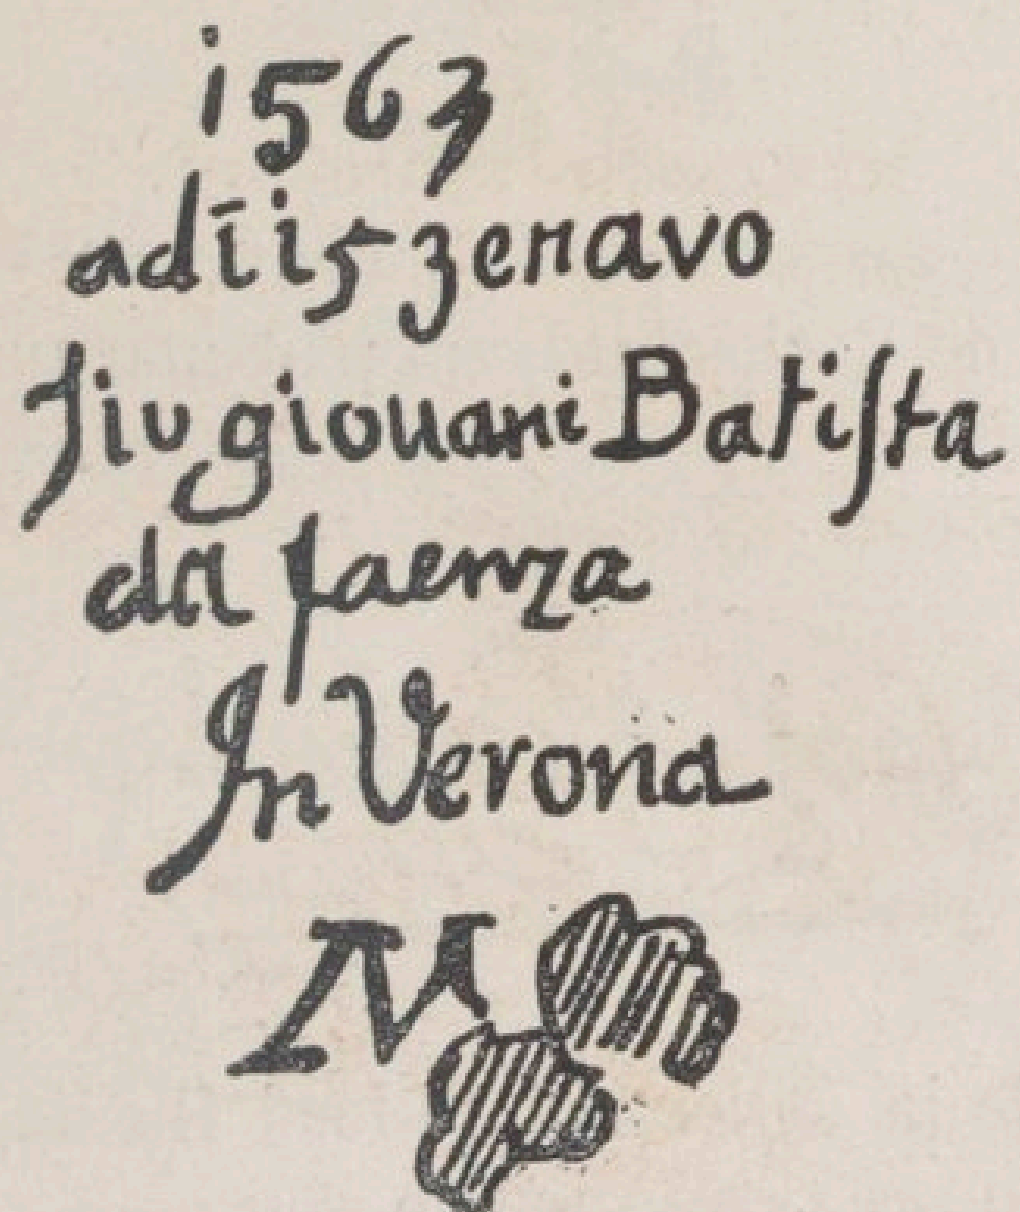 1563
adī 15 zenavo
Fiu giouani Batiſta
da faenza
In Verona
M